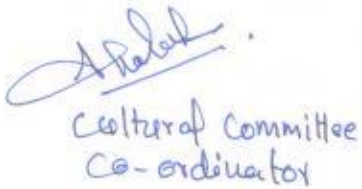 Cultural Committee
Co-ordinator